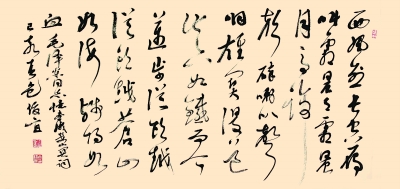 西风烈长空雁
叫霜晨霜晨
月马蹄
声碎喇叭声
咽雄关漫道
真如铁而今
迈步从头越
从头越苍山
如海残阳如
血 毛泽东同志忆秦娥娄山关词
己亥